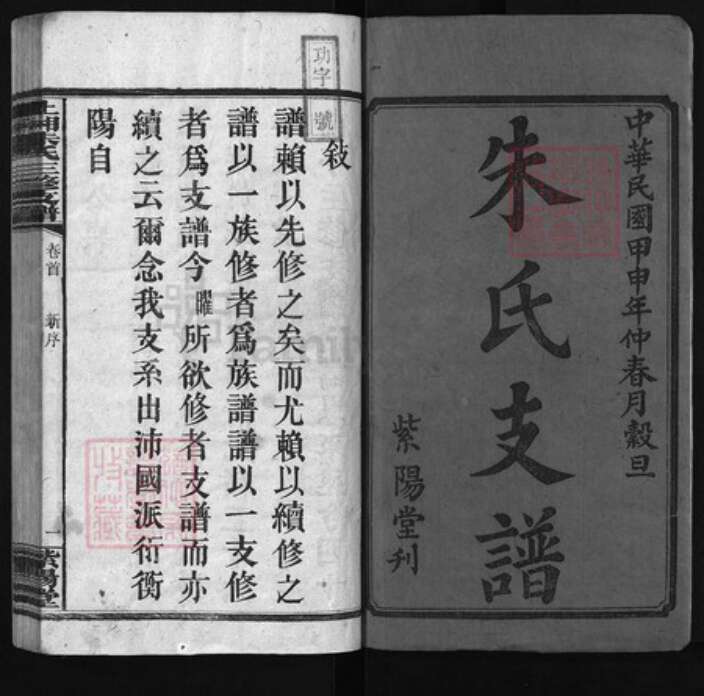 中華民國甲申年仲春月穀旦
朱氏支譜
紫陽堂刊
功字 號
敍
譜賴以先修之矣而尤賴以續修之
譜以一族修者爲族譜譜以一支修
者爲支譜今曜所欲修者支譜而亦
續之云爾念我支系出沛國派衍衡
陽自
上湘朱氏三修支譜
卷首
新序
一
紫陽堂